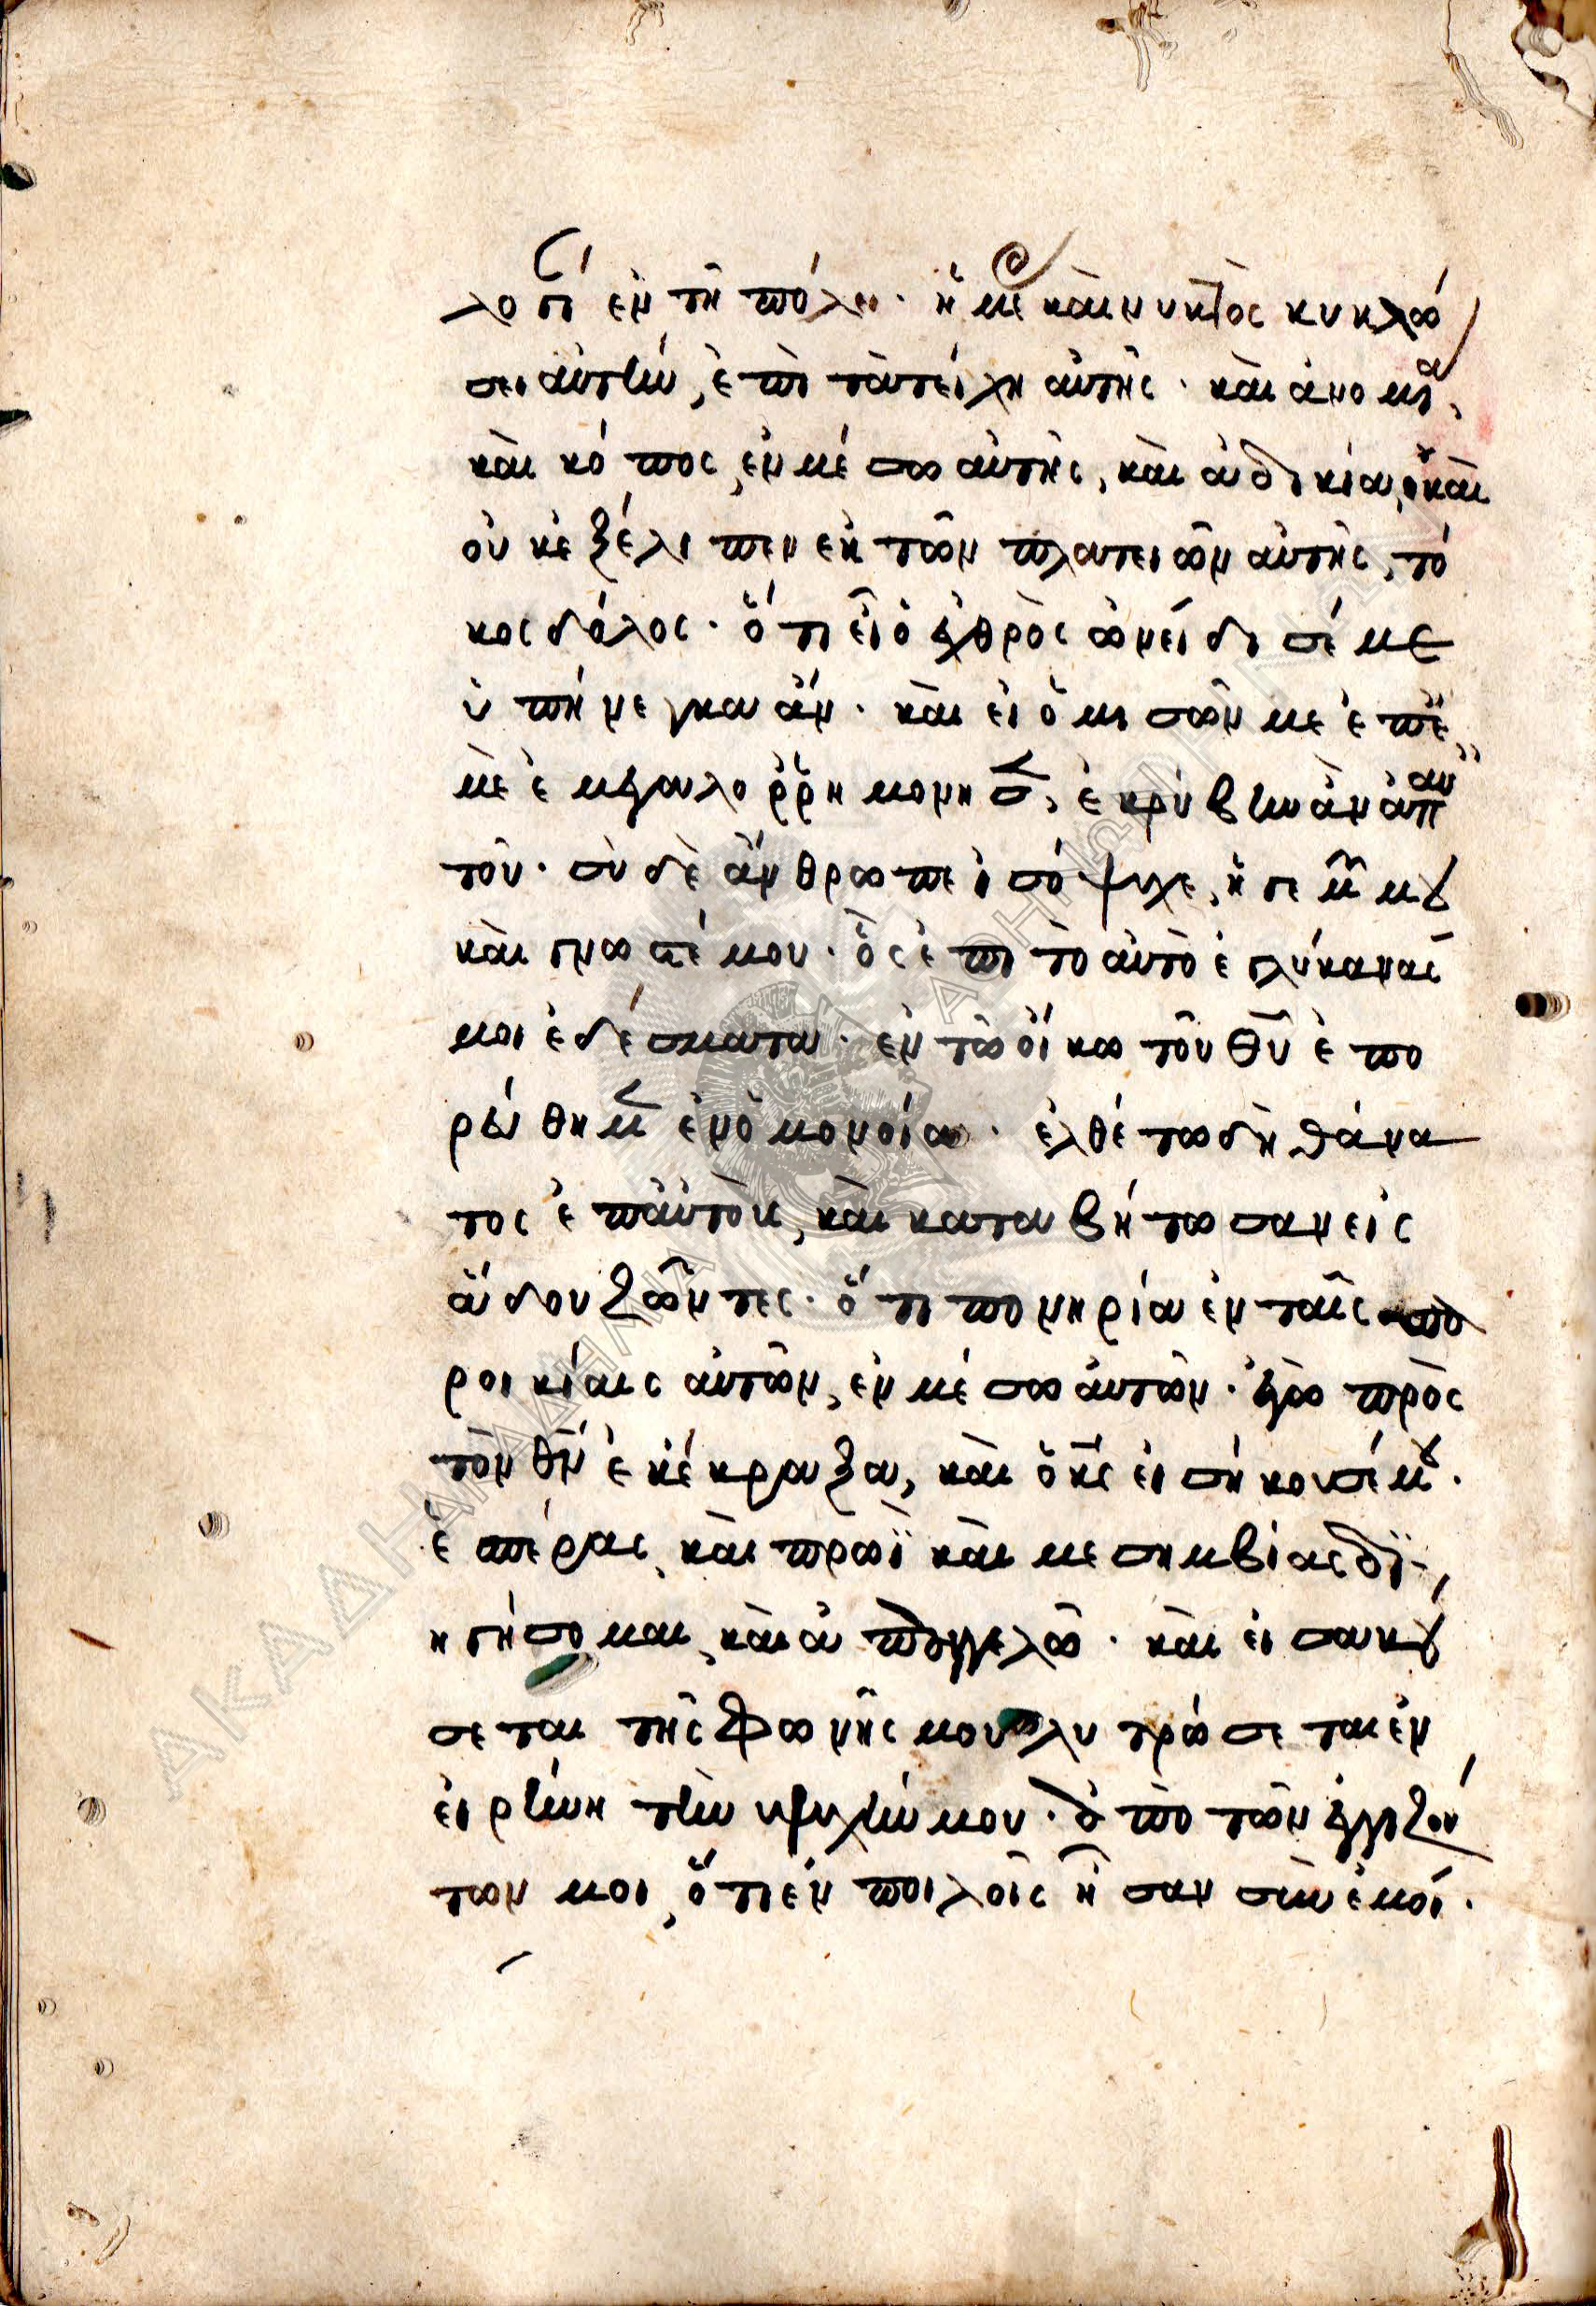 λογί ἐν τῆ πόλει· ἡμέρας καὶ νυκτὸς κυκλώ
σει αὐτὴν, ἐπὶ τὰ τείχη αὐτῆς· καὶ ἀνομία,
καὶ κόπος, ἐν μέσω αὐτῆς, καὶ ἀδικία, καὶ
οὐκ ἐξέλιπεν ἐκ τῶν πλατειῶν αὐτῆς, τό
κος δόλος· ὅτι εἰ ὁ ἐχθρὸς ὠνείδισέ με
ὑπήνεγκα ἄν· καὶ εἰ ὁ μισῶν με ἐπ᾽ ἐ
μὲ ἐμεγαλορρημόνησεν, ἐκρύβην ἂν ἀπ᾽ αὐ
τοῦ· σὺ δὲ ἄνθρωπε ἰσόψυχε, ἡγεμών μου
καὶ γνωστέ μου· ὃς ἐπὶ τὸ αὐτὸ ἐγλύκανάς
μοι ἐδέσματα· ἐν τῶ οἴκω τοῦ θῦ ἐπο
ρεύθημεν ἐν ὁμονοία· ἐλθέτω δὴ θάνα
τος ἐπ᾽ αὐτοὺς, καὶ καταβήτωσαν εἰς
ἅδου ζῶντες· ὅτι πονηρία ἐν ταῖς πα
ροικίαις αὐτῶν, ἐν μέσω αὐτῶν· ἐγὼ πρὸς
τὸν θν ἐκέκραξα, καὶ ὁ κς εἰσήκουσέ μου·
ἑσπέρας, καὶ πρωῒ καὶ μεσημβρίας δι
ηγήσομαι, καὶ ἀπαγγελῶ· καὶ εἰσακού
σεται τῆς φωνῆς μου λυτρώσεται ἐν
εἰρήνη τὴν ψυχήν μου· ἀπὸ τῶν ἐγγιζόν
των μοι, ὅτι ἐν πολλοῖς ἦσαν σὺν ἐμοί·
ΑΚΑΔΗΜΙΑ ΑΘΗΝΩΝ